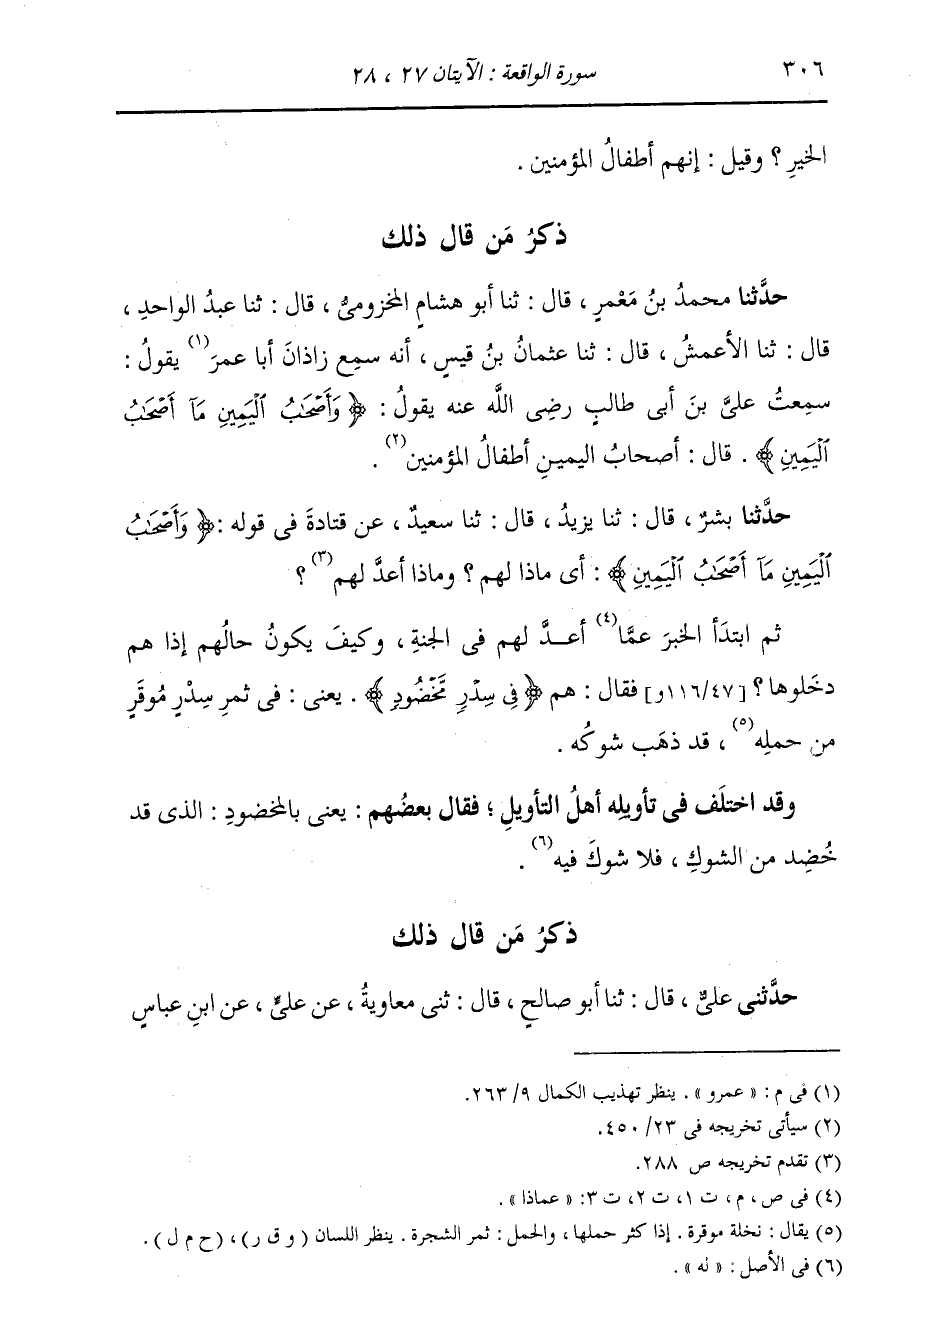 ٣٠٦ سورة الواقعة : الآيتان ٢٧ ، ٢٨
الخيرِ ؟ وقيل : إنهم أطفالُ المؤمنين .
ذكرُ مَن قال ذلك
حدَّثنا محمدُ بنُ مَعْمرٍ ، قال : ثنا أبو هشامٍ المخزومىُّ ، قال : ثنا عبدُ الواحدِ ،
قال : ثنا الأعمشُ ، قال : ثنا عثمانُ بنُ قيسٍ ، أنه سمِع زاذانَ أبا عمرَ(١) يقولُ :
سمِعتُ علىَّ بنَ أبى طالبٍ رضِى اللَّه عنه يقولُ : ﴿ وَأَصْحَٰبُ ٱلْيَمِينِ مَآ أَصْحَٰبُ
ٱلْيَمِينِ ﴾ . قال : أصحابُ اليمينِ أطفالُ المؤمنين(٢) .
حدَّثنا بشرٌ ، قال : ثنا يزيدُ ، قال : ثنا سعيدٌ ، عن قتادةَ فى قوله : ﴿ وَأَصْحَٰبُ
ٱلْيَمِينِ مَآ أَصْحَٰبُ ٱلْيَمِينِ ﴾ : أى ماذا لهم ؟ وماذا أعدَّ لهم(٣) ؟
ثم ابتدَأ الخبرَ عمَّا(٤) أعــدَّ لهم فى الجنةِ ، وكيفَ يكونُ حالُهم إذا هم
دخَلوها ؟ [١١٦/٤٧و] فقال : هم ﴿ فِى سِدْرٍ مَّخْضُودٍ ﴾ . يعنى : فى ثمرِ سِدْرٍ مُوقَرٍ
من حملِه(٥) ، قد ذهَب شوكُه .
وقد اختلَف فى تأويلِه أهلُ التأويلِ ؛ فقال بعضُهم : يعنى بالمخضودِ : الذى قد
خُضِد من الشوكِ ، فلا شوكَ فيه(٦) .
ذكرُ مَن قال ذلك
حدَّثنى علىٌّ ، قال : ثنا أبو صالحٍ ، قال : ثنى معاويةُ ، عن علىٍّ ، عن ابنِ عباسٍ
(١) فى م : « عمرو » . ينظر تهذيب الكمال ٩/ ٢٦٣.
(٢) سيأتى تخريجه فى ٢٣/ ٤٥٠.
(٣) تقدم تخريجه ص ٢٨٨.
(٤) فى ص، م، ت ١، ت ٢، ت ٣: « عماذا » .
(٥) يقال : نخلة موقرة . إذا كثر حملها، والحمل : ثمر الشجرة . ينظر اللسان ( و ق ر) ، (ح م ل ) .
(٦) فى الأصل : « له » .